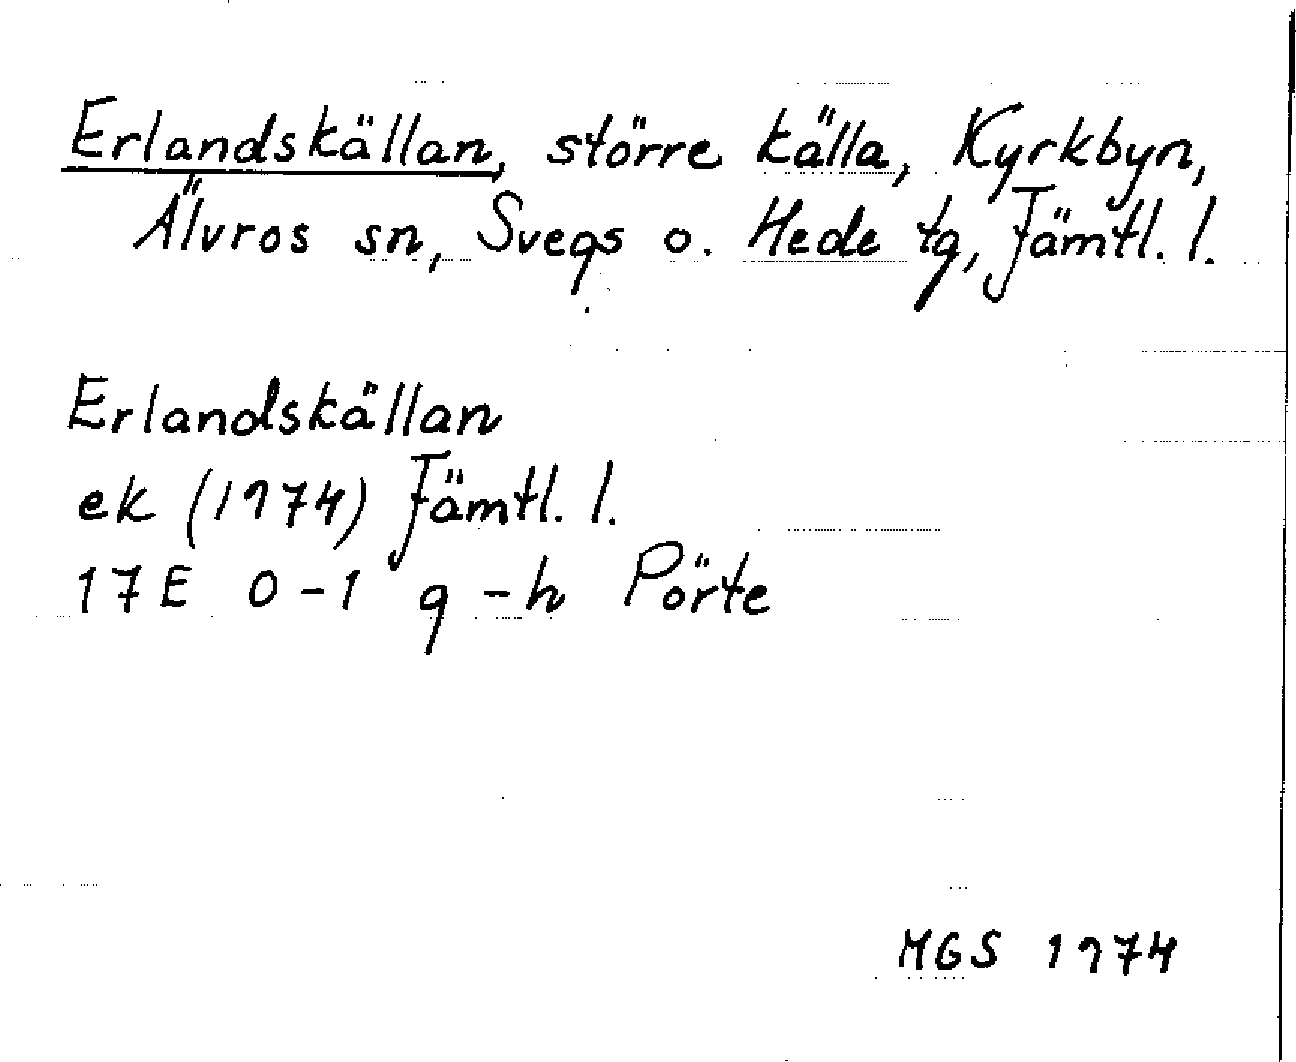 Erlandskällan, större källa, Kyrkbyn,
Älvros sn, Svegs o. Hede tg, Jämtl. l.
Erlandskällan
ek (1974) Jämtl. l.
17E 0-1 g-h Pörte
MGS 1974